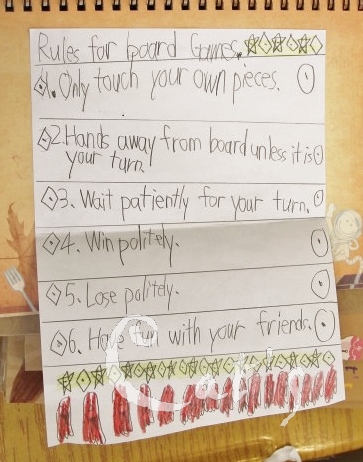 Rules for board Games.
1. Only touch your own pieces.
2. Hands away from board unless it is
your turn.
3. Wait patiently for your turn.
4. Win politely.
5. Lose politely.
6. Have fun with your friends.